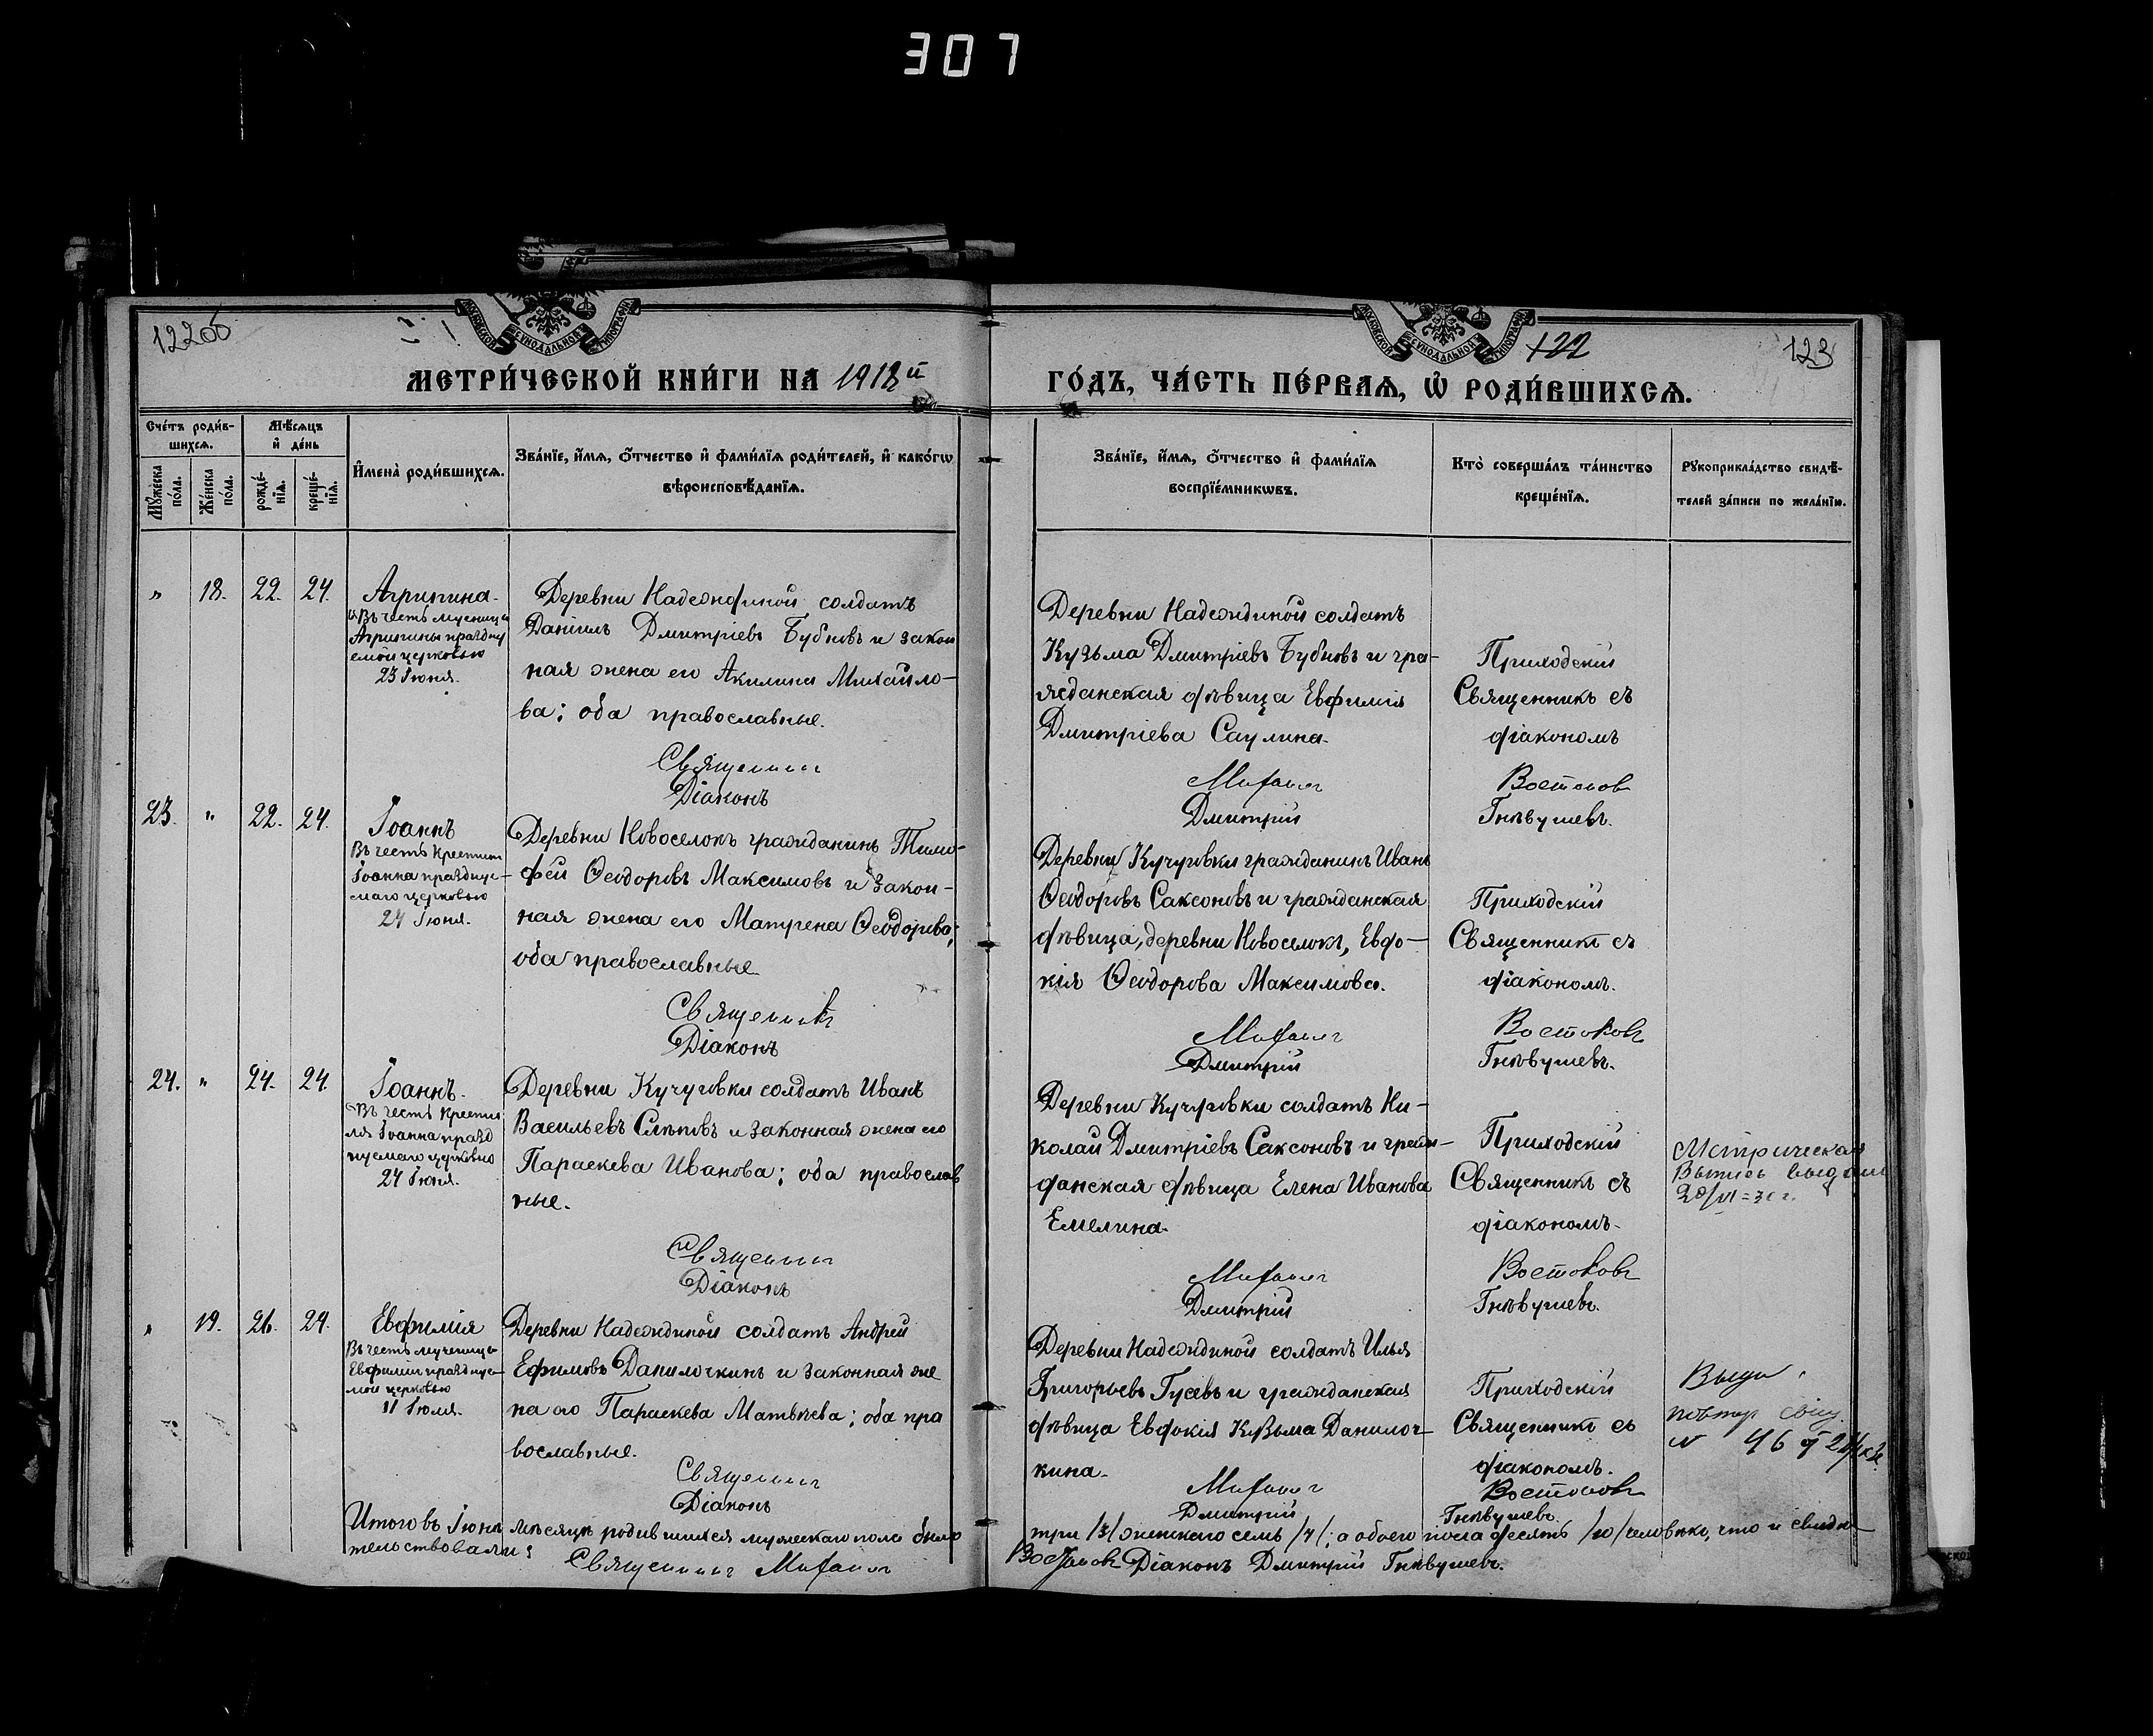 307
122об
122
123
МОСКОВСКОЙ СѴНОДАЛЬНОЙ ТИПОГРАФІИ
МОСКОВСКОЙ СѴНОДАЛЬНОЙ ТИПОГРАФІИ
МЕТРИ́ЧЕСКОЙ КНИ́ГИ НА 1918й
ГО́ДЪ, ЧА́СТЬ ПЕ́РВАѦ, Ѡ҆ РОДИ́ВШИХСѦ.
Сче́тъ роди́в-
шихсѧ.
Мѣ́сѧцъ
и҆ де́нь
Мꙋ́жеска
по́ла.
Же́нска
по́ла.
рожде́-
нїѧ.
креще́-
нїѧ.
И҆мена̀ роди́вшихсѧ.
Зва́нїе, и҆́мѧ, ѻ҆́тчество и҆ фами́лїѧ роди́телей, и҆ како́гѡ
вѣроисповѣ́данїѧ.
Зва́нїе, и҆́мѧ, ѻ҆́тчество и҆ фами́лїѧ
воспрїе́мникѡвъ.
Кто̀ соверша́лъ та́инство
креще́нїѧ.
Рꙋкоприкла́дство свидѣ́-
телей за́писи по жела́нїю.
" 18. 22. 24. Агрипина.
Въ честь мученицы
Агрипины праздну
емой церковью
23 Іюня.
Деревни Надеждиной солдатъ
Даніилъ Дмитріевъ Бубновъ и закон
ная жена его Акилина Михайло-
ва; оба православные.
Священникъ
Діаконъ
Деревни Надеждиной солдатъ
Кузьма Дмитріевъ Бубновъ и гра-
жданская дѣвица Евфимія
Дмитріева Саулина.
Михаилъ
Дмитрій
Приходскій
Священникъ съ
діакономъ
Востоковъ
Гнѣвушевъ.
23. " 22. 24. Іоаннъ
Въ честь Крестит
Іоанна праздну-
емаго церковью
24 Іюня.
Деревни Новоселокъ гражданинъ Тимо-
фей Ѳеодоровъ Максимовъ и закон-
ная жена его Матрена Ѳеодорова;
оба православные
Священникъ
Діаконъ
Деревни Кучуговки гражданинъ Иванъ
Ѳеодоровъ Саксоновъ и гражданская
дѣвица, деревни Новоселокъ, Евдо-
кія Ѳеодорова Максимова.
Михаилъ
Дмитрій
Приходскій
Священникъ съ
діакономъ.
Востоковъ
Гнѣвушевъ.
24. " 24. 24. Іоаннъ.
Въ честь Крестит
ля Іоанна празд
нуемаго церковью
24 Іюня.
Деревни Кучуговки солдатъ Иванъ
Васильевъ Слѣповъ и законная жена его
Параскева Иванова; оба православ
ные.
Священникъ
Діаконъ
Деревни Кучуговки солдатъ Ни-
колай Дмитріевъ Саксоновъ и граж-
данская дѣвица Елена Иванова
Емелина.
Михаилъ
Дмитрій
Приходскій
Священникъ съ
діакономъ.
Востоковъ
Гнѣвушевъ.
Метрическая
Выпись выдана
" 19. 26. 29. Евфимія
Въ честь мученицы
Евфиміи праздну-
мой церковью
11 Іюля.
Деревни Надеждиной солдатъ Андрей
Ефимовъ Данилочкинъ и законная же
на его Параскева Матвѣева; оба пра
вославные.
Священникъ
Діаконъ
Деревни Надеждиной солдатъ Илья
Григорьевъ Гусевъ и гражданская
дѣвица Евдокія Кузьма Данилоч-
кина.
Михаилъ
Дмитрій
Приходскій
Священникъ съ
діакономъ.
Востоковъ
Гнѣвушевъ.
повтор
N 46
Итого въ Іюнѣ мѣсяцѣ родившихся мужескаго пола было три /3/ женскаго семь /7/; а обоего пола десять /10/ человѣкъ, что и свидѣ
тельствовали: Священникъ Михаилъ Востоковъ Діаконъ Дмитрій Гнѣвушевъ.